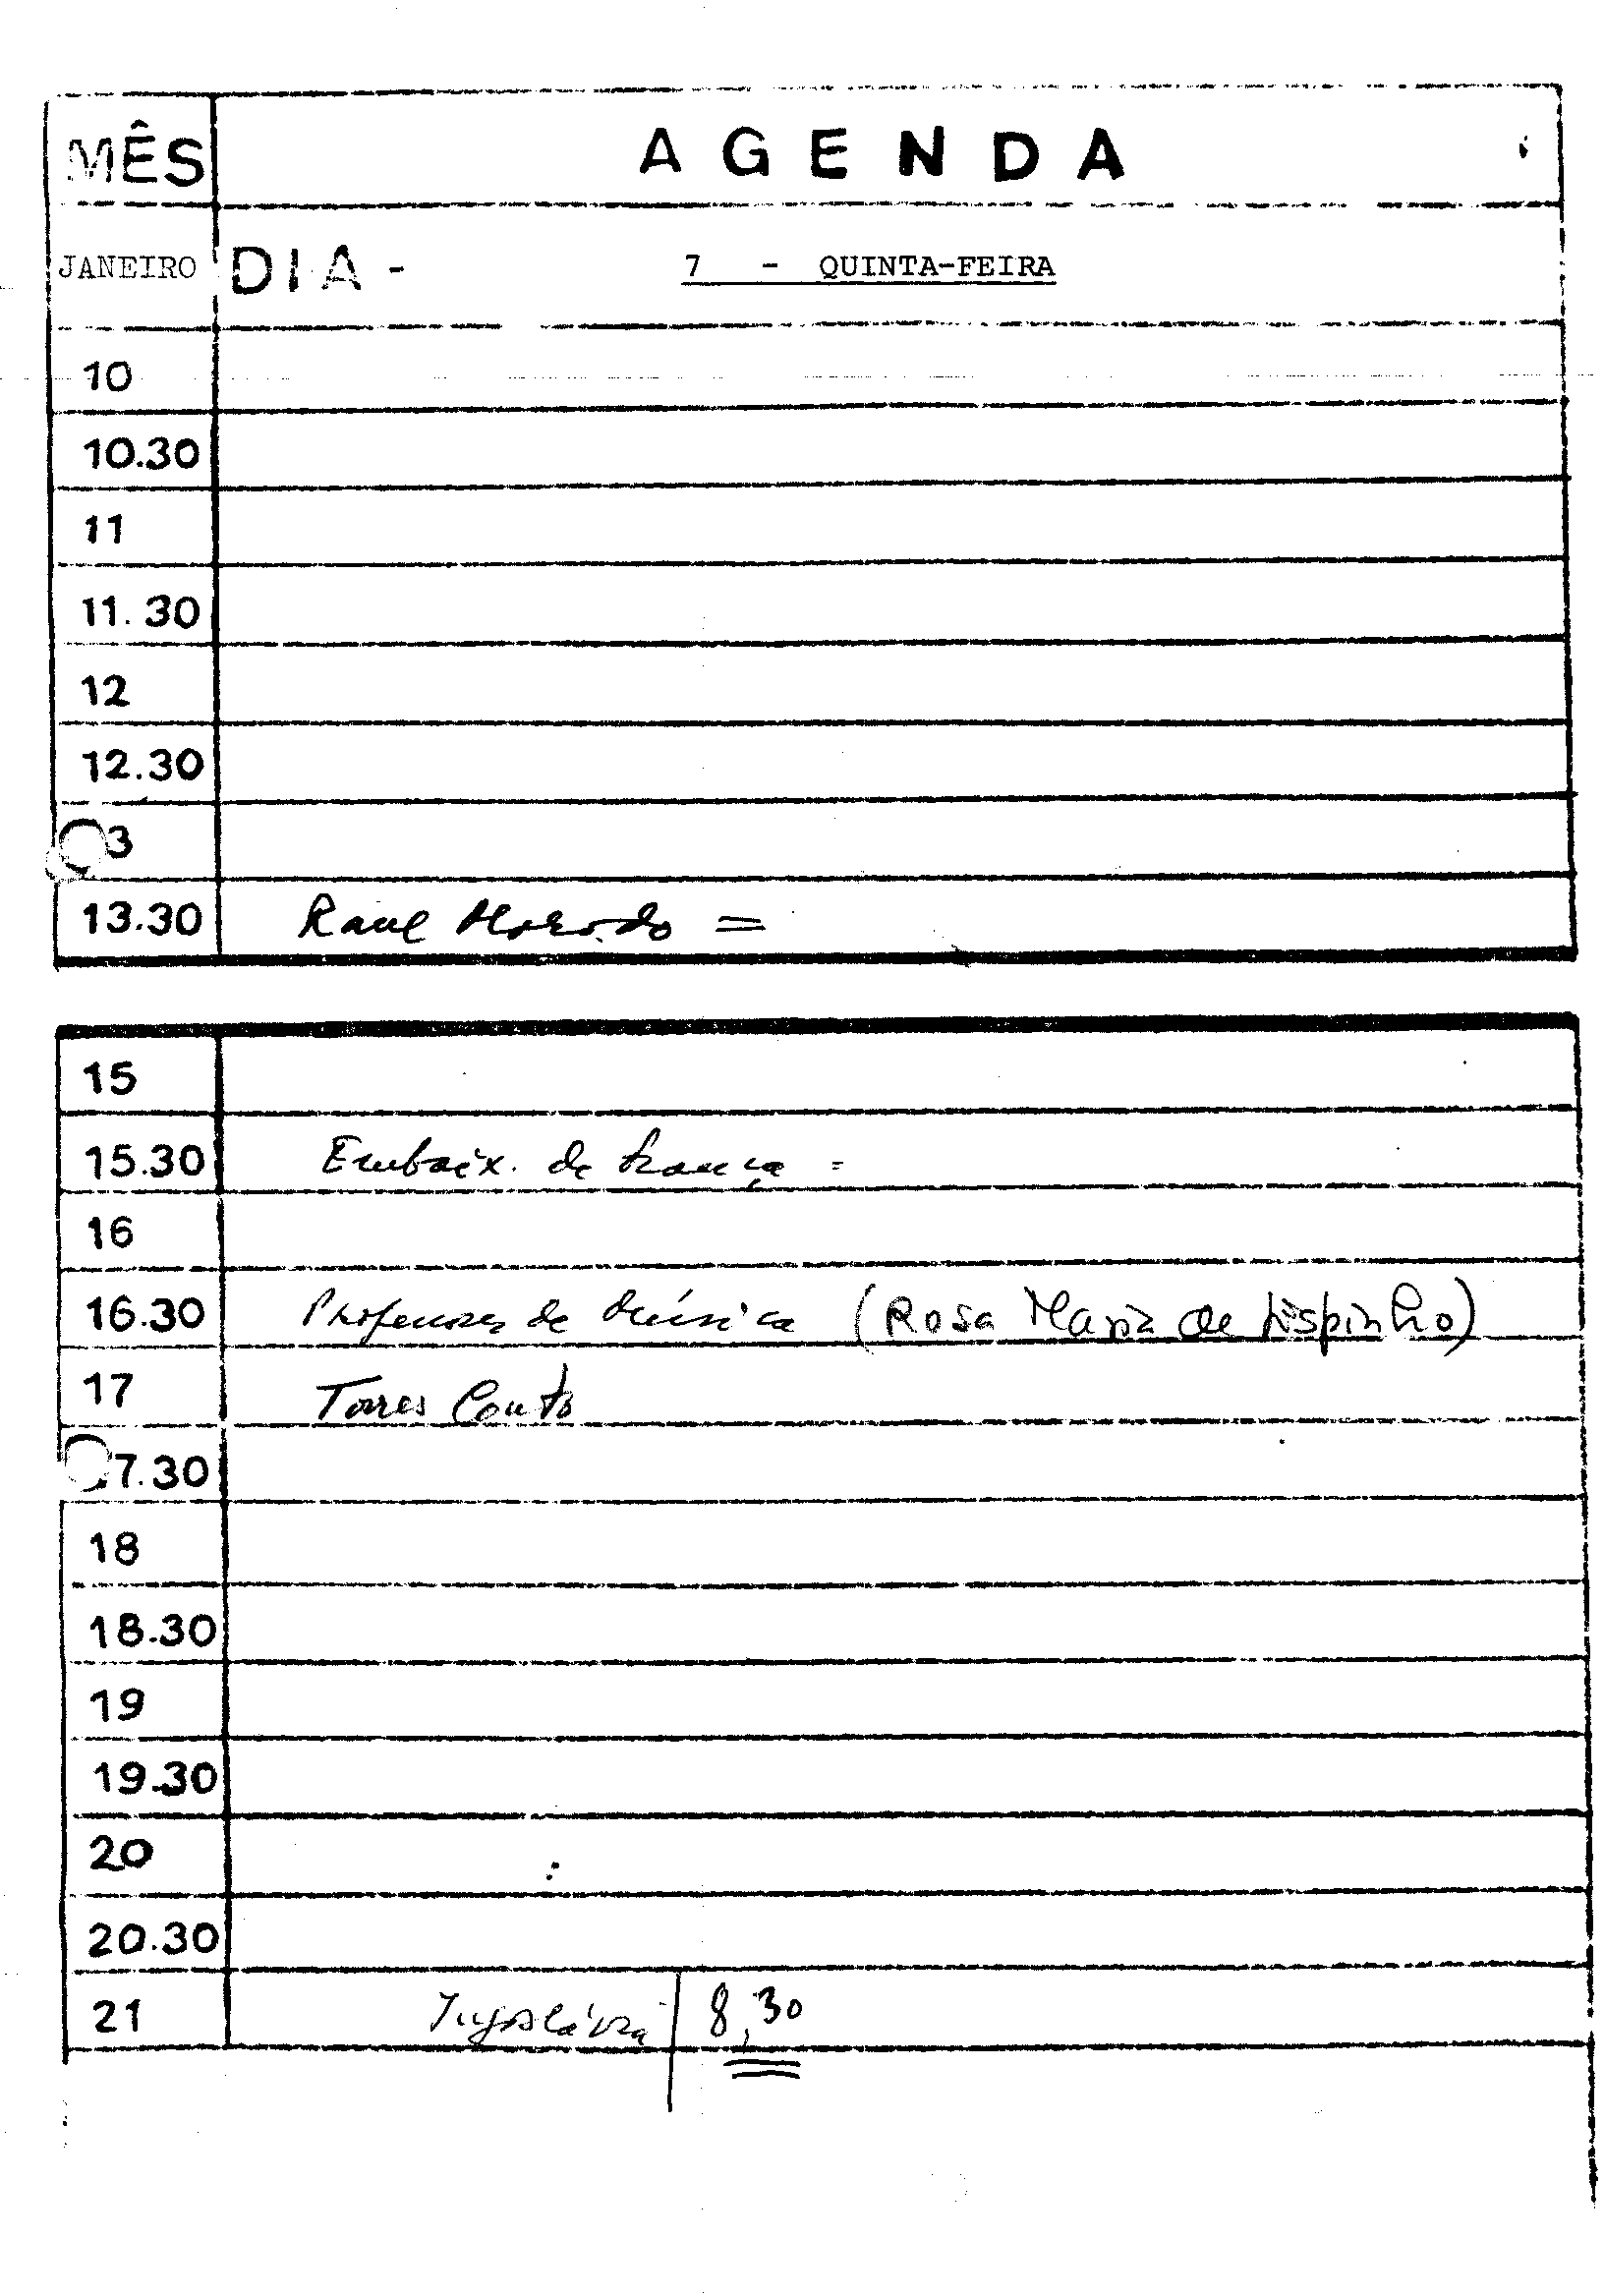 MÊS AGENDA
JANEIRO DIA - 7 - QUINTA-FEIRA
10
10.30
11
11.30
12
12.30
3
13.30 Raul Morodo =
15
15.30 Embaix. de França =
16
16.30 Professores de Música (Rosa Maria de Espinho)
17 Torres Couto
7.30
18
18.30
19
19.30
20
20.30
21 Jugoslávia 8,30